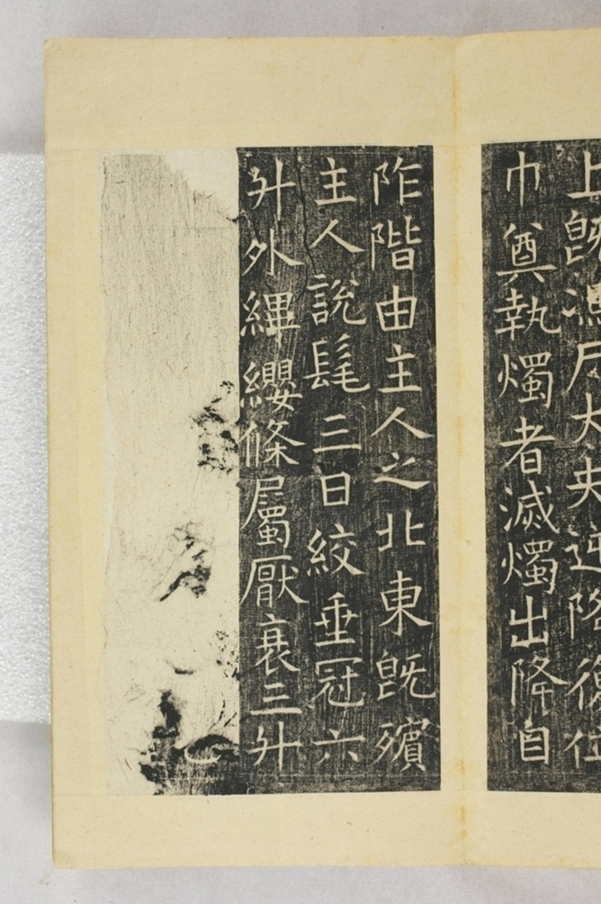 上既馮尸大夫逆降復位
巾奠執燭者滅燭出降自
阼階由主人之北東既殯
主人說髦三日絞垂冠六
升外縪纓條屬厭衰三升